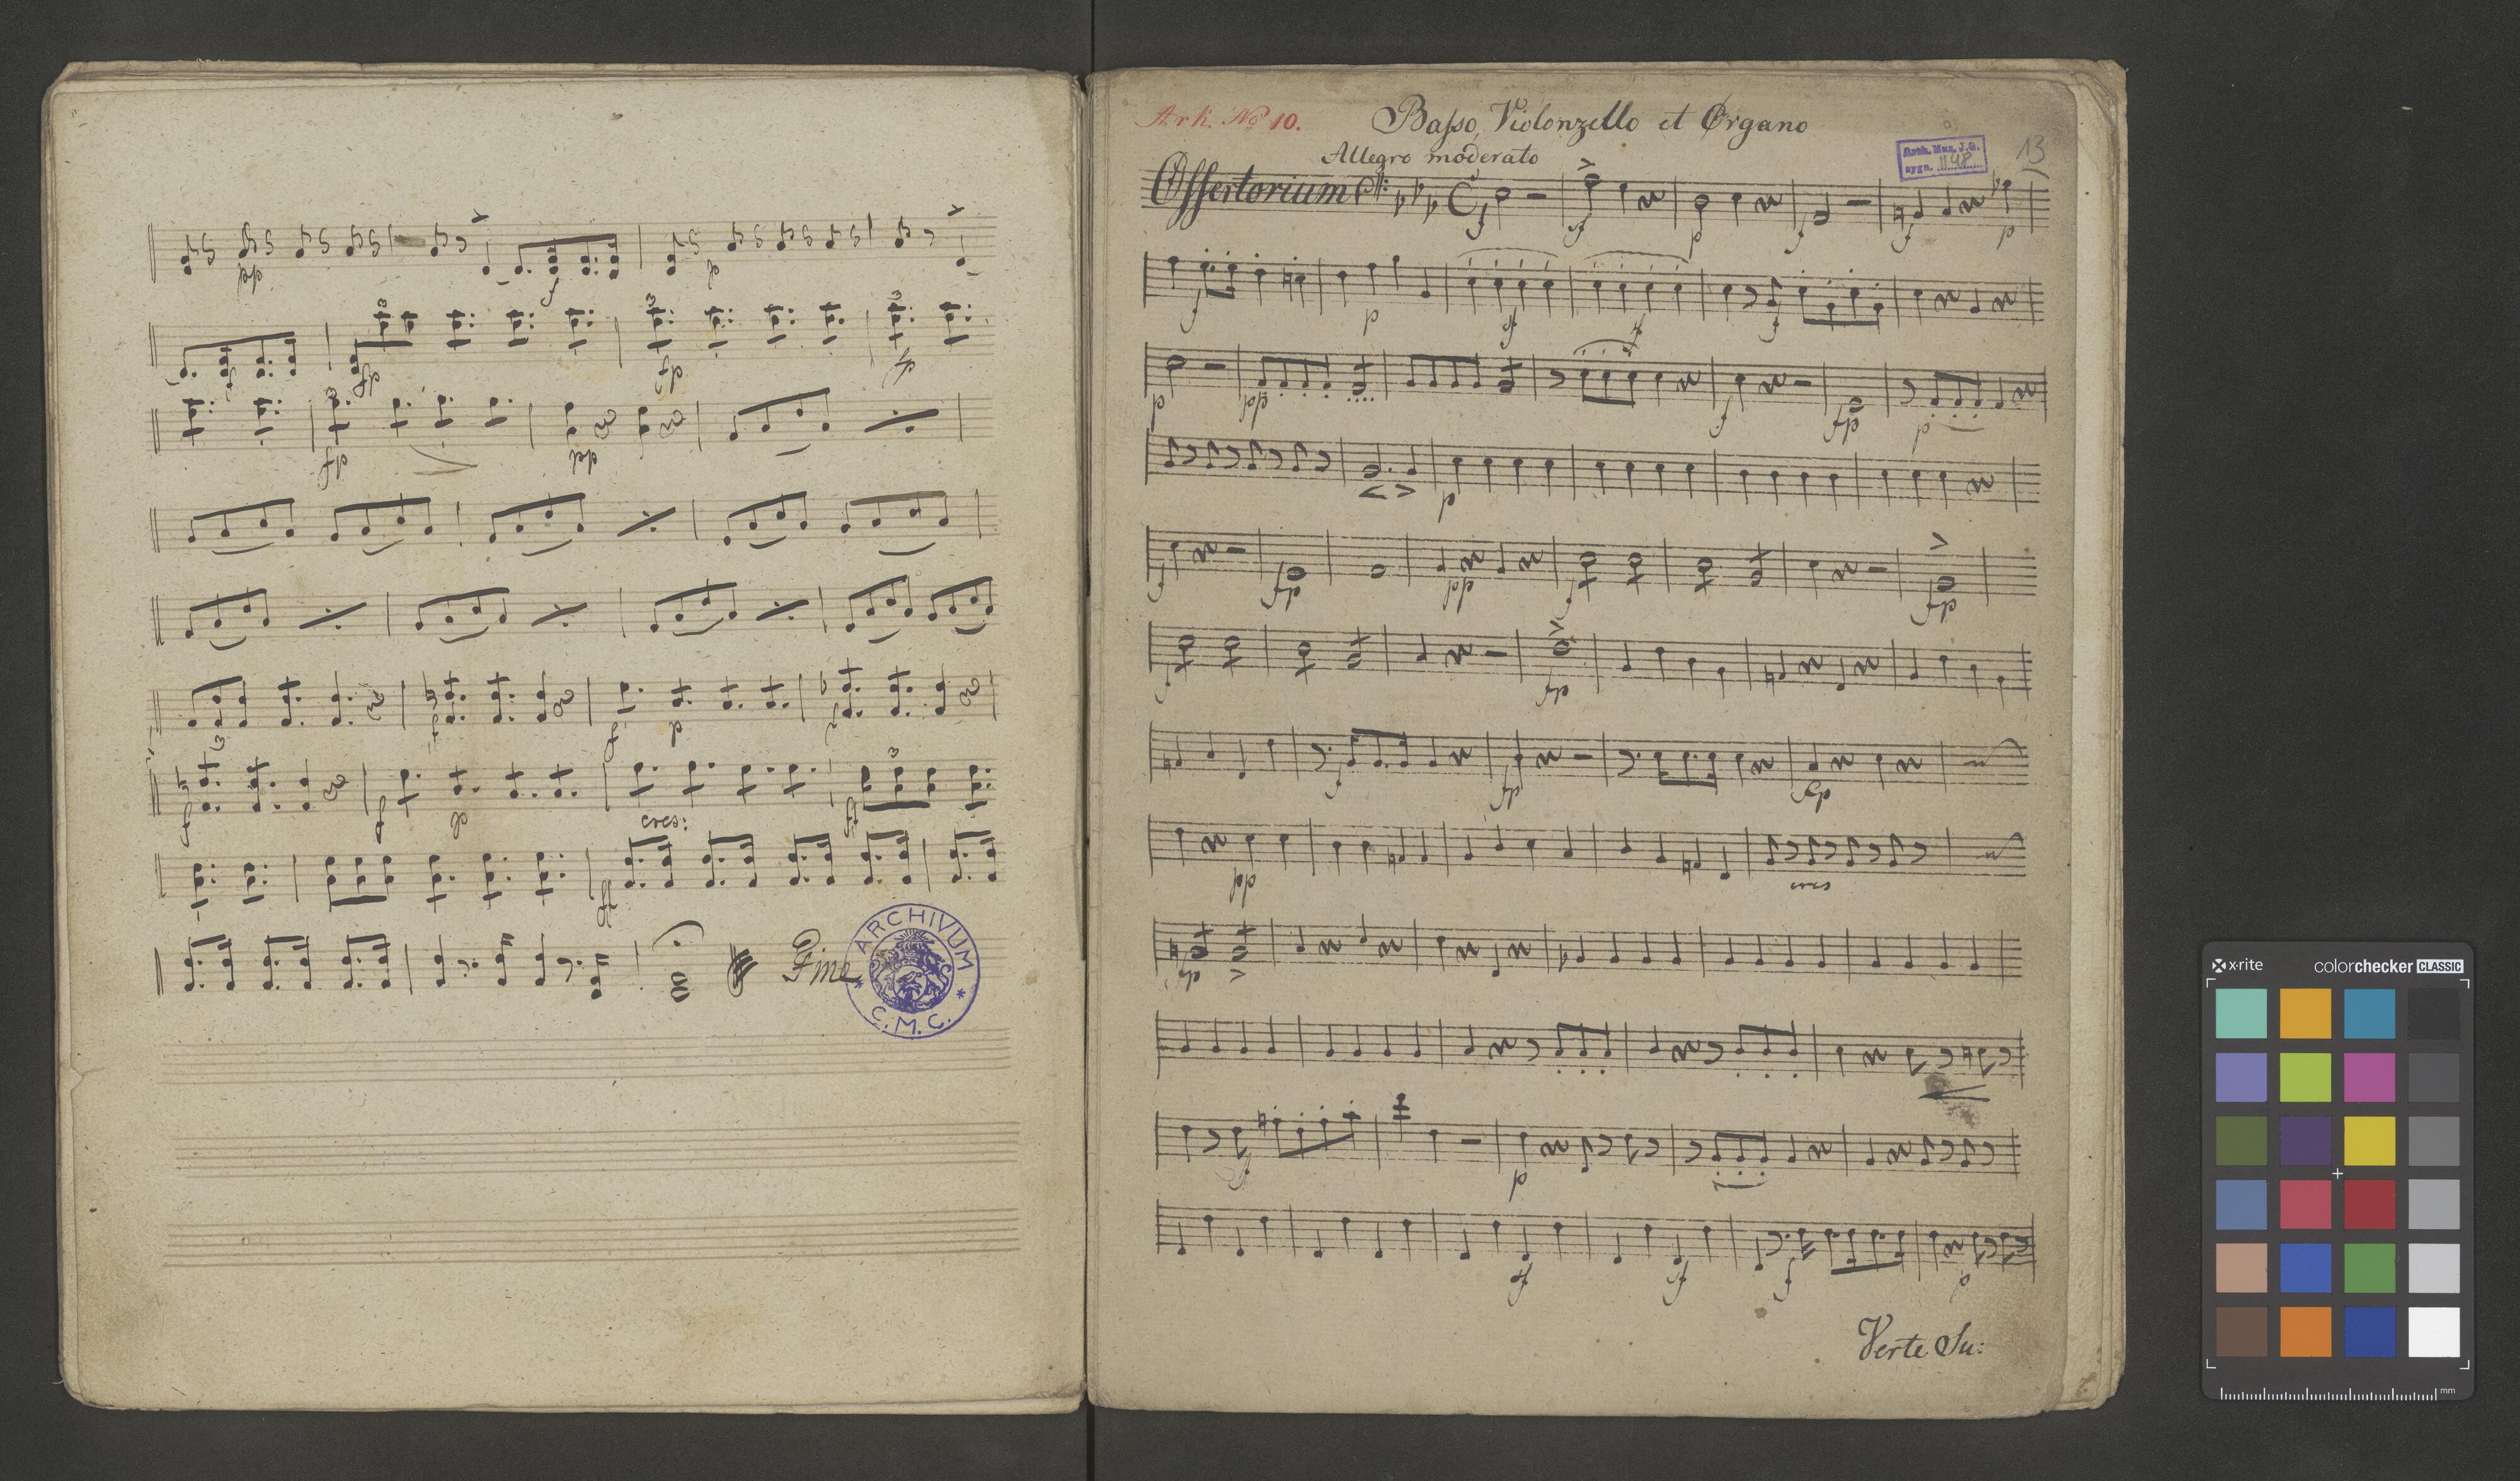 pp f p
3 3 3
f fp fp fp
3
fp pp
f f p f
3
f f p cres: ff
ff
Fine
ARCHIVUM
* C. M. C. *
Ark. No 10. Basso, Violonzello et Organo
Arch. Muz. J.G.
sygn. II.48
13
Allegro moderato
Offertorium C f sf p f f p
f p sf sf f
p pp f fp p
p
f fp pp f fp
f fp
f fp fp
pp cres
fp
f p
sf sf f p
Verte Su:
x-rite colorchecker CLASSIC
mm